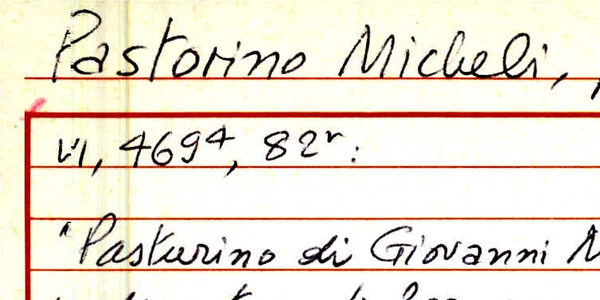 Pastorino Micheli,
VI, 4694, 82r:
"Pasturino di Giovanni M